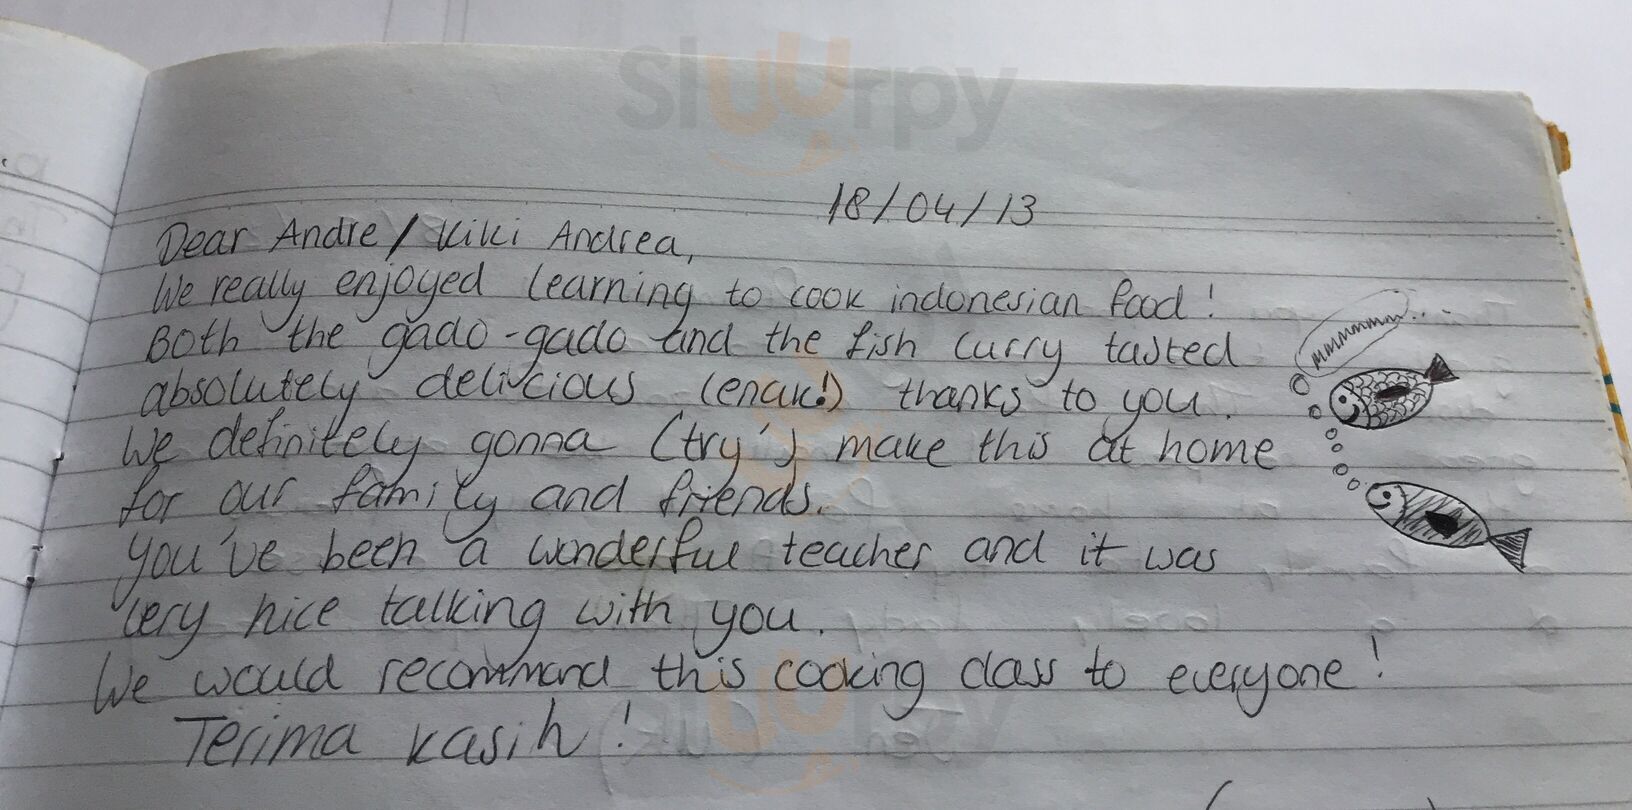 Sluurpy
18/04/13
Dear Andre / Kiki Andrea,
We really enjoyed learning to cook indonesian food!
Both the gado-gado and the fish curry tasted
mmmmmm...
absolutely delicious (enak!) thanks to you.
We definitely gonna (try') make this at home
for our family and friends.
You've been a wonderful teacher and it was
very nice talking with you.
We would recommand this cooking class to everyone!
Terima kasih!
Sluurpy